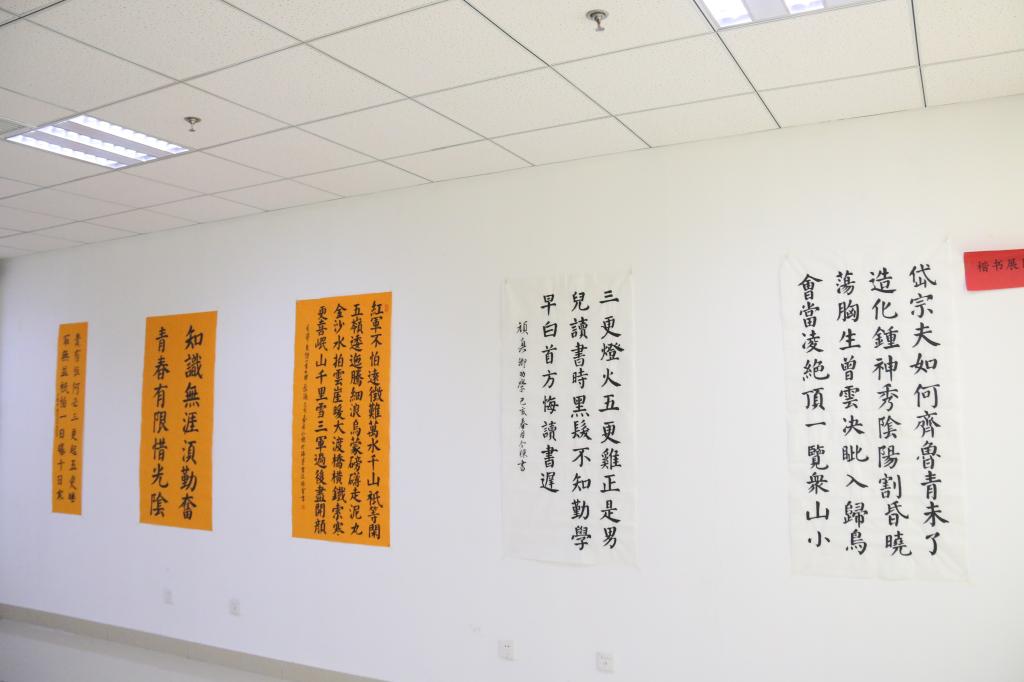 楷书展
岱宗夫如何齊魯青未了
造化鍾神秀陰陽割昏曉
蕩胸生曾雲决眦入歸鳥
會當凌絶頂一覽衆山小
三更燈火五更雞正是男
兒讀書時黑髮不知勤學
早白首方悔讀書遲
顔真卿勸學己亥春月
書
紅軍不怕遠徵難萬水千山衹等閑
五嶺逶迤騰細浪烏蒙磅礴走泥丸
金沙水拍雲崖暖大渡橋横鐵索寒
更喜岷山千里雪三軍過後盡開顔
知識無涯須勤奮
青春有限惜光陰
貴有恒何必三更起五更眠
最無益衹怕一日曝十日寒